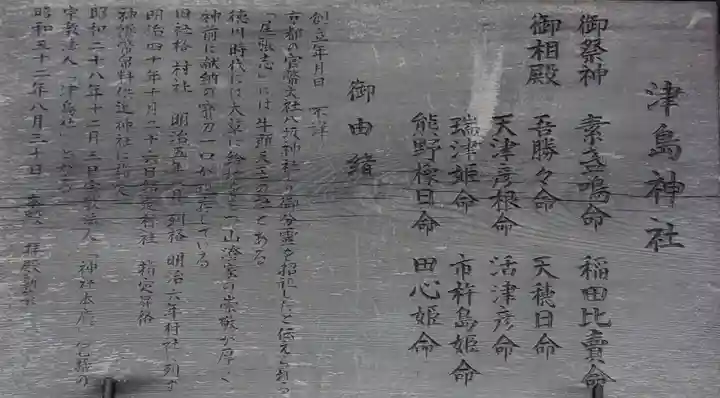 津島神社
御祭神 素盞嗚命 稲田比賣命
御相殿 吾勝々命 天穂日命
天津彦根命 活津彦命
瑞津姫命 市杵島姫命
熊野樟日命 田心姫命
御由緒
創立年月日 不詳
京都の官幣大社八坂神社の御分霊を招祀したと伝えられる
「尾張志」には牛頭天王の社とある
徳川時代には大草に給地をもつ山澄家の崇敬が厚く
神前に献納の宝刀一口が現存している
旧社格 村社 明治五年 月 列格 明治六年村社に列す
明治四十年十月二十六日 村社 指定昇格
神饌幣帛料供進神社に指定
昭和二十八年十二月三日宗教法人「神社本庁」包括の
宗教法人「津島社」となる
昭和五十二年八月三十日